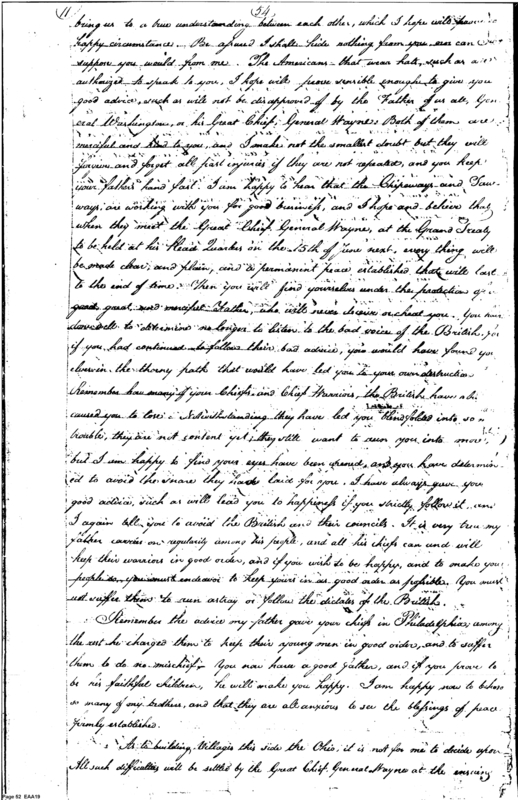 11 54
bring us to a true understanding between each other, which I hope will
happy circumstance. Be assured I shall hide nothing from you nor can
suppose you would from me. The Americans that wear hats, such as are
authorized to speak to you, I hope will prove sensible enough to give you
good advice, such as will not be disapproved of by the Father of us all, Gen
eral Washington, or his Great Chief, General Wayne; Both of them are
merciful and kind to you, and I make not the smallest doubt but they will
forgive and forget all past injuries if they are not repeated, and you keep
your fathers hand fast. I am happy to hear that the Chipeways and Taw-
ways are working with you for good business, and I hope and believe that
when they meet the Great Chief General Wayne, at the Grand Treaty
to be held at his Head Quarters on the 15th of June next, every thing will
be made clear and plain, and a permanent peace established that will last
to the end of time. Then you will find yourselves under the protection of a
good, great and merciful Father, who will never deceive or cheat you. You have
done well to determine no longer to listen to the bad voice of the British, for
if you had continued to follow their bad advice, you would have found your
selves in the thorny path that would have led you to your own destruction
Remember how many of your Chiefs and Chief Warriors, the British have
caused you to lose: Notwithstanding they have led you blindfolded into so
trouble, they are not content yet; they still want to run you into more,
but I am happy to find your eyes have been opened, and you have determin
ed to avoid the snare they have laid for you. I have always gave you
good advice, such as will lead you to happiness if you strictly follow it and
I again tell you to avoid the British and their councils. It is very true my
father carries on regularity among his people, and all his chiefs can and will
keep their warriors in good order, and if you wish to be happy, and to make you
people so you must endeavor to keep yours in as good order as possible. You must
not suffer them to run astray or follow the dictates of the British.
Remember the advice my father gave your chiefs in Philadelphia, among
the rest he charged them to keep their young men in good order, and to suffer
them to do no mischief. You now have a good father, and if you prove to
be his faithful children, he will make you happy. I am happy now to behold
so many of my brothers, and that they are all anxious to see the blessings of peace
firmly established.
As to building Villages this side the Ohio, it is not for me to decide upon
All such difficulties will be settled by the Great Chief, General Wayne at the ensuing
Page 52 EAA19